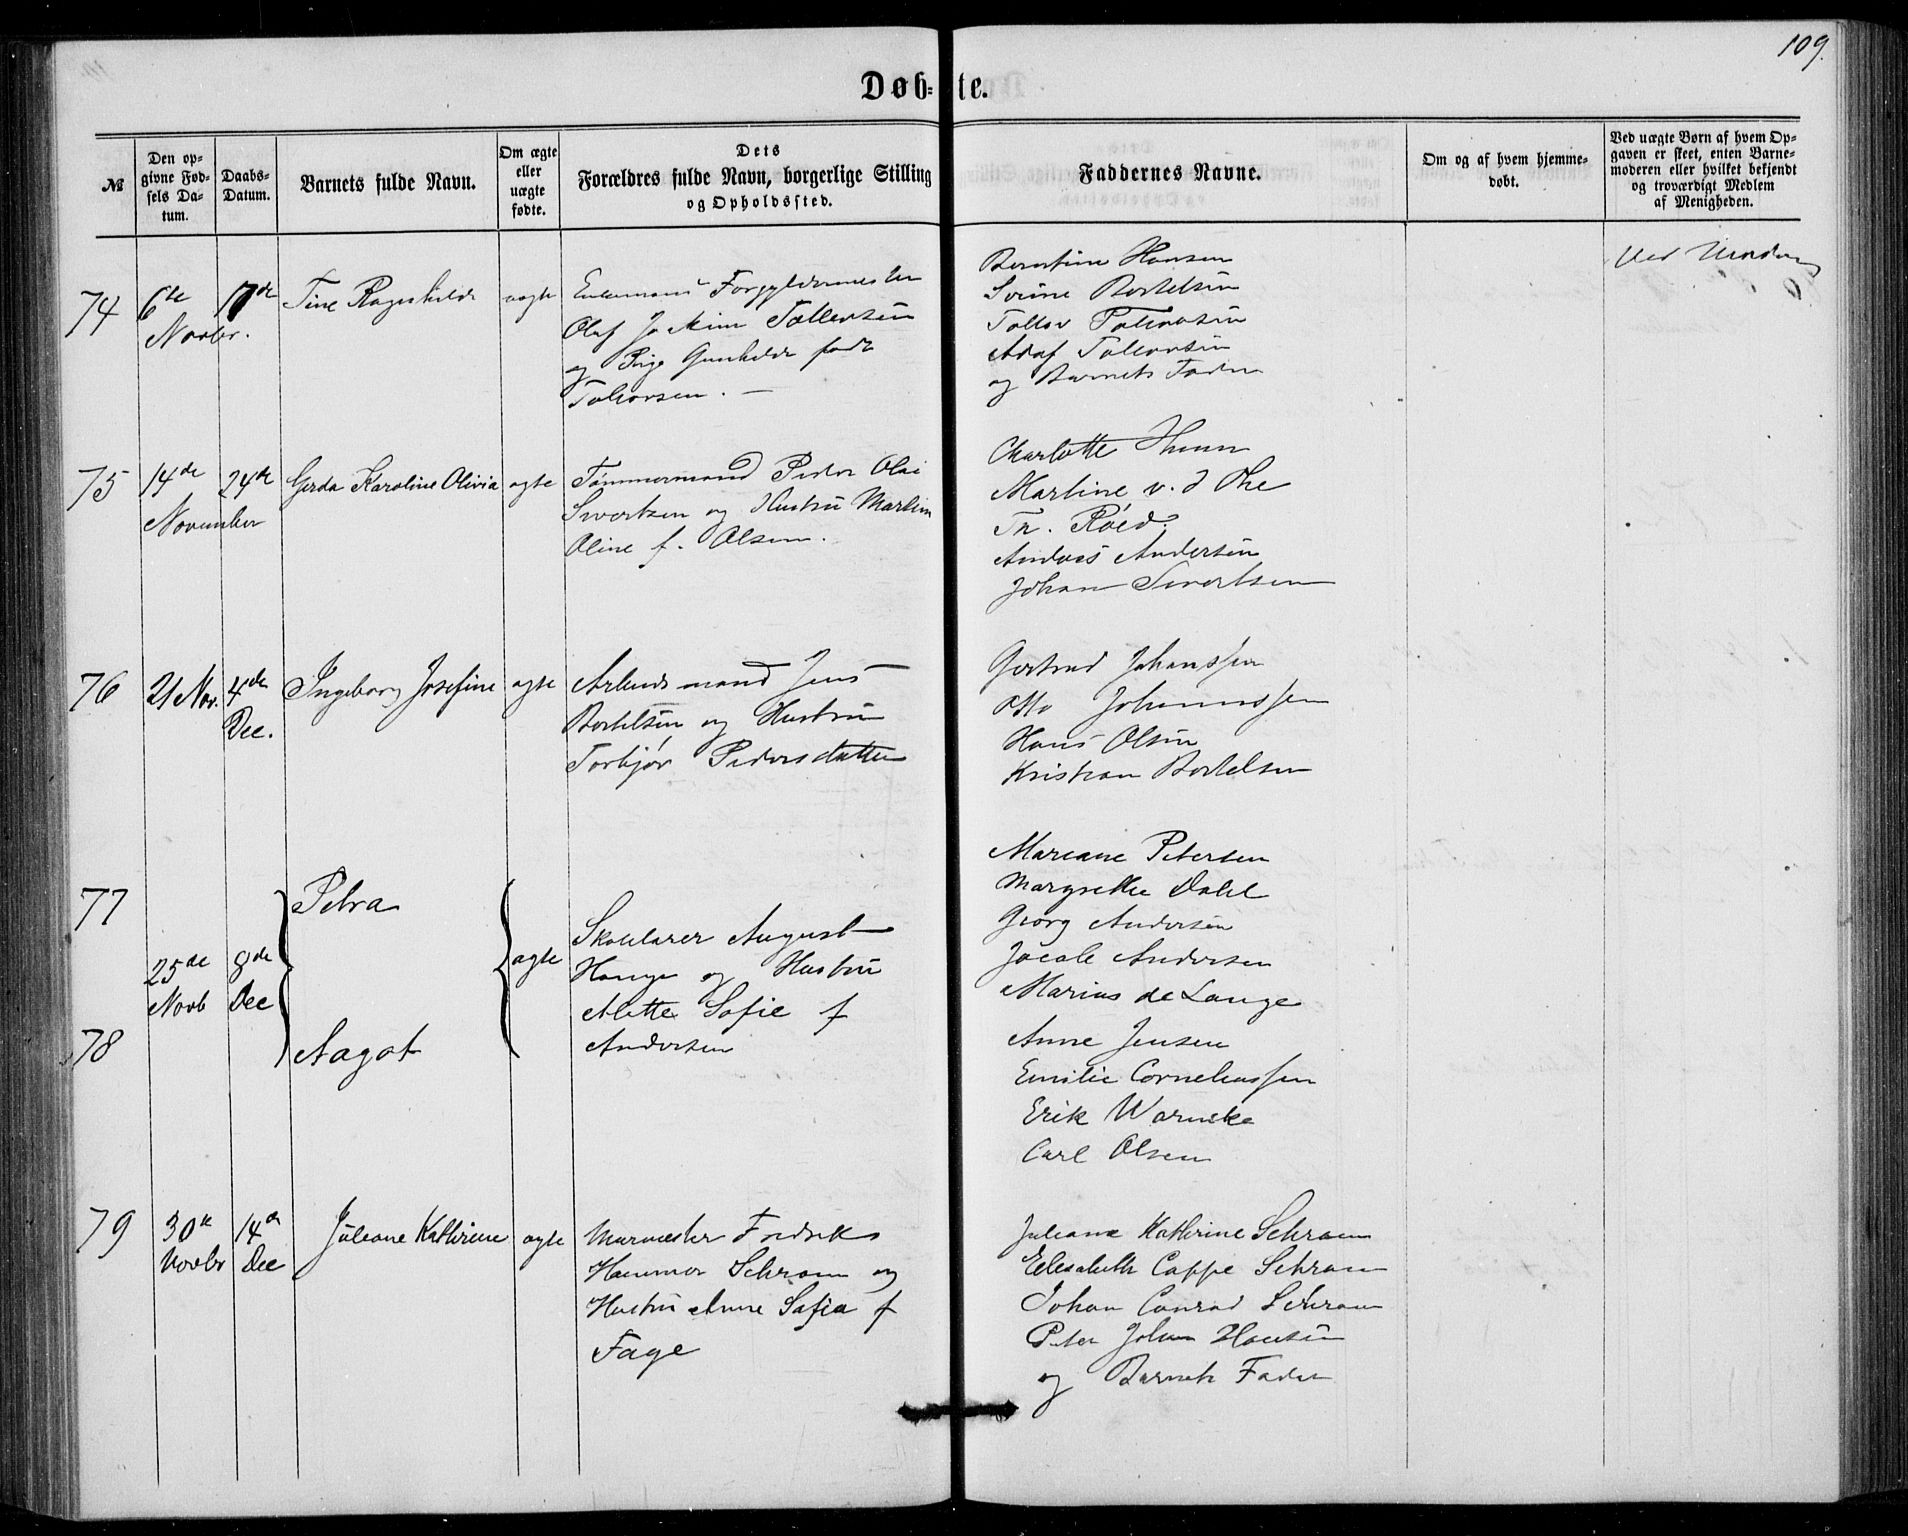 109.
Døb-te.
№
Den op-
givne Fød-
sels Da-
tum.
Daabs-
Datum.
Barnets fulde Navn.
Om ægte
eller
uægte
fødte.
Dets
Forældres fulde Navn, borgerlige Stilling
og Opholdssted.
Faddernes Navne.
Om og af hvem hjemme-
døbt.
Ved uægte Børn af hvem Op-
gaven er skeet, enten Barne-
moderen eller hvilket bekjendt
og troværdigt Medlem
af Menigheden.
74
6te
Novbr.
17de
Tine Ragnhilde
ægte
Forgyldermester
Olaf Jockim Tollevsen
og Pige Gunhilde født
Tollevsen. —
Berntine Hansen
Sørine Bertelsen
Tollev Tollevsen
Adof Tollevsen
og Barnets Fader
Ved
75
14de
November
24de
Gerda Karoline Olivia
ægte
Tømmermand Peder Olai
Sivertsen og Hustru Martine
Oline f. Olsen.
Charlotte
Martine v. d
Th. Røed.
Andreas Andersen
Johan Sivertsen
76
21 Nov.
4de
Dec.
Ingeborg Josefine
ægte
Arbeidsmand Jens
Bertelsen og Hustru
Torbjør Pedersdatter
Gertrud Johanssen
Otto Johannssen
Hans Olsen
Kristian Bertelsen
77
25de
Novb
8de
Dec
Petra
ægte
Skolelærer August
Hauge og Hustru
Mette Sofie f
Andersen
78
Aagot
Mariane Petersen
Margrethe Dahl
Georg Andersen
Jacob Andersen
Marius de Lange
Anne Jensen
Emilie Corneliussen
Erik Warncke
Carl Olsen
79
30te
Novbr
14de
Dec
Juliane Kathrine
ægte
Murmester Fredrik
Hammer Schram og
Hustru Anne Sofia f
Fage
Juliane Kathrine Schram
Elisabeth Cappe Schram
Johan Conrad Schram
Peter Johan Hansen
og Barnets Fader